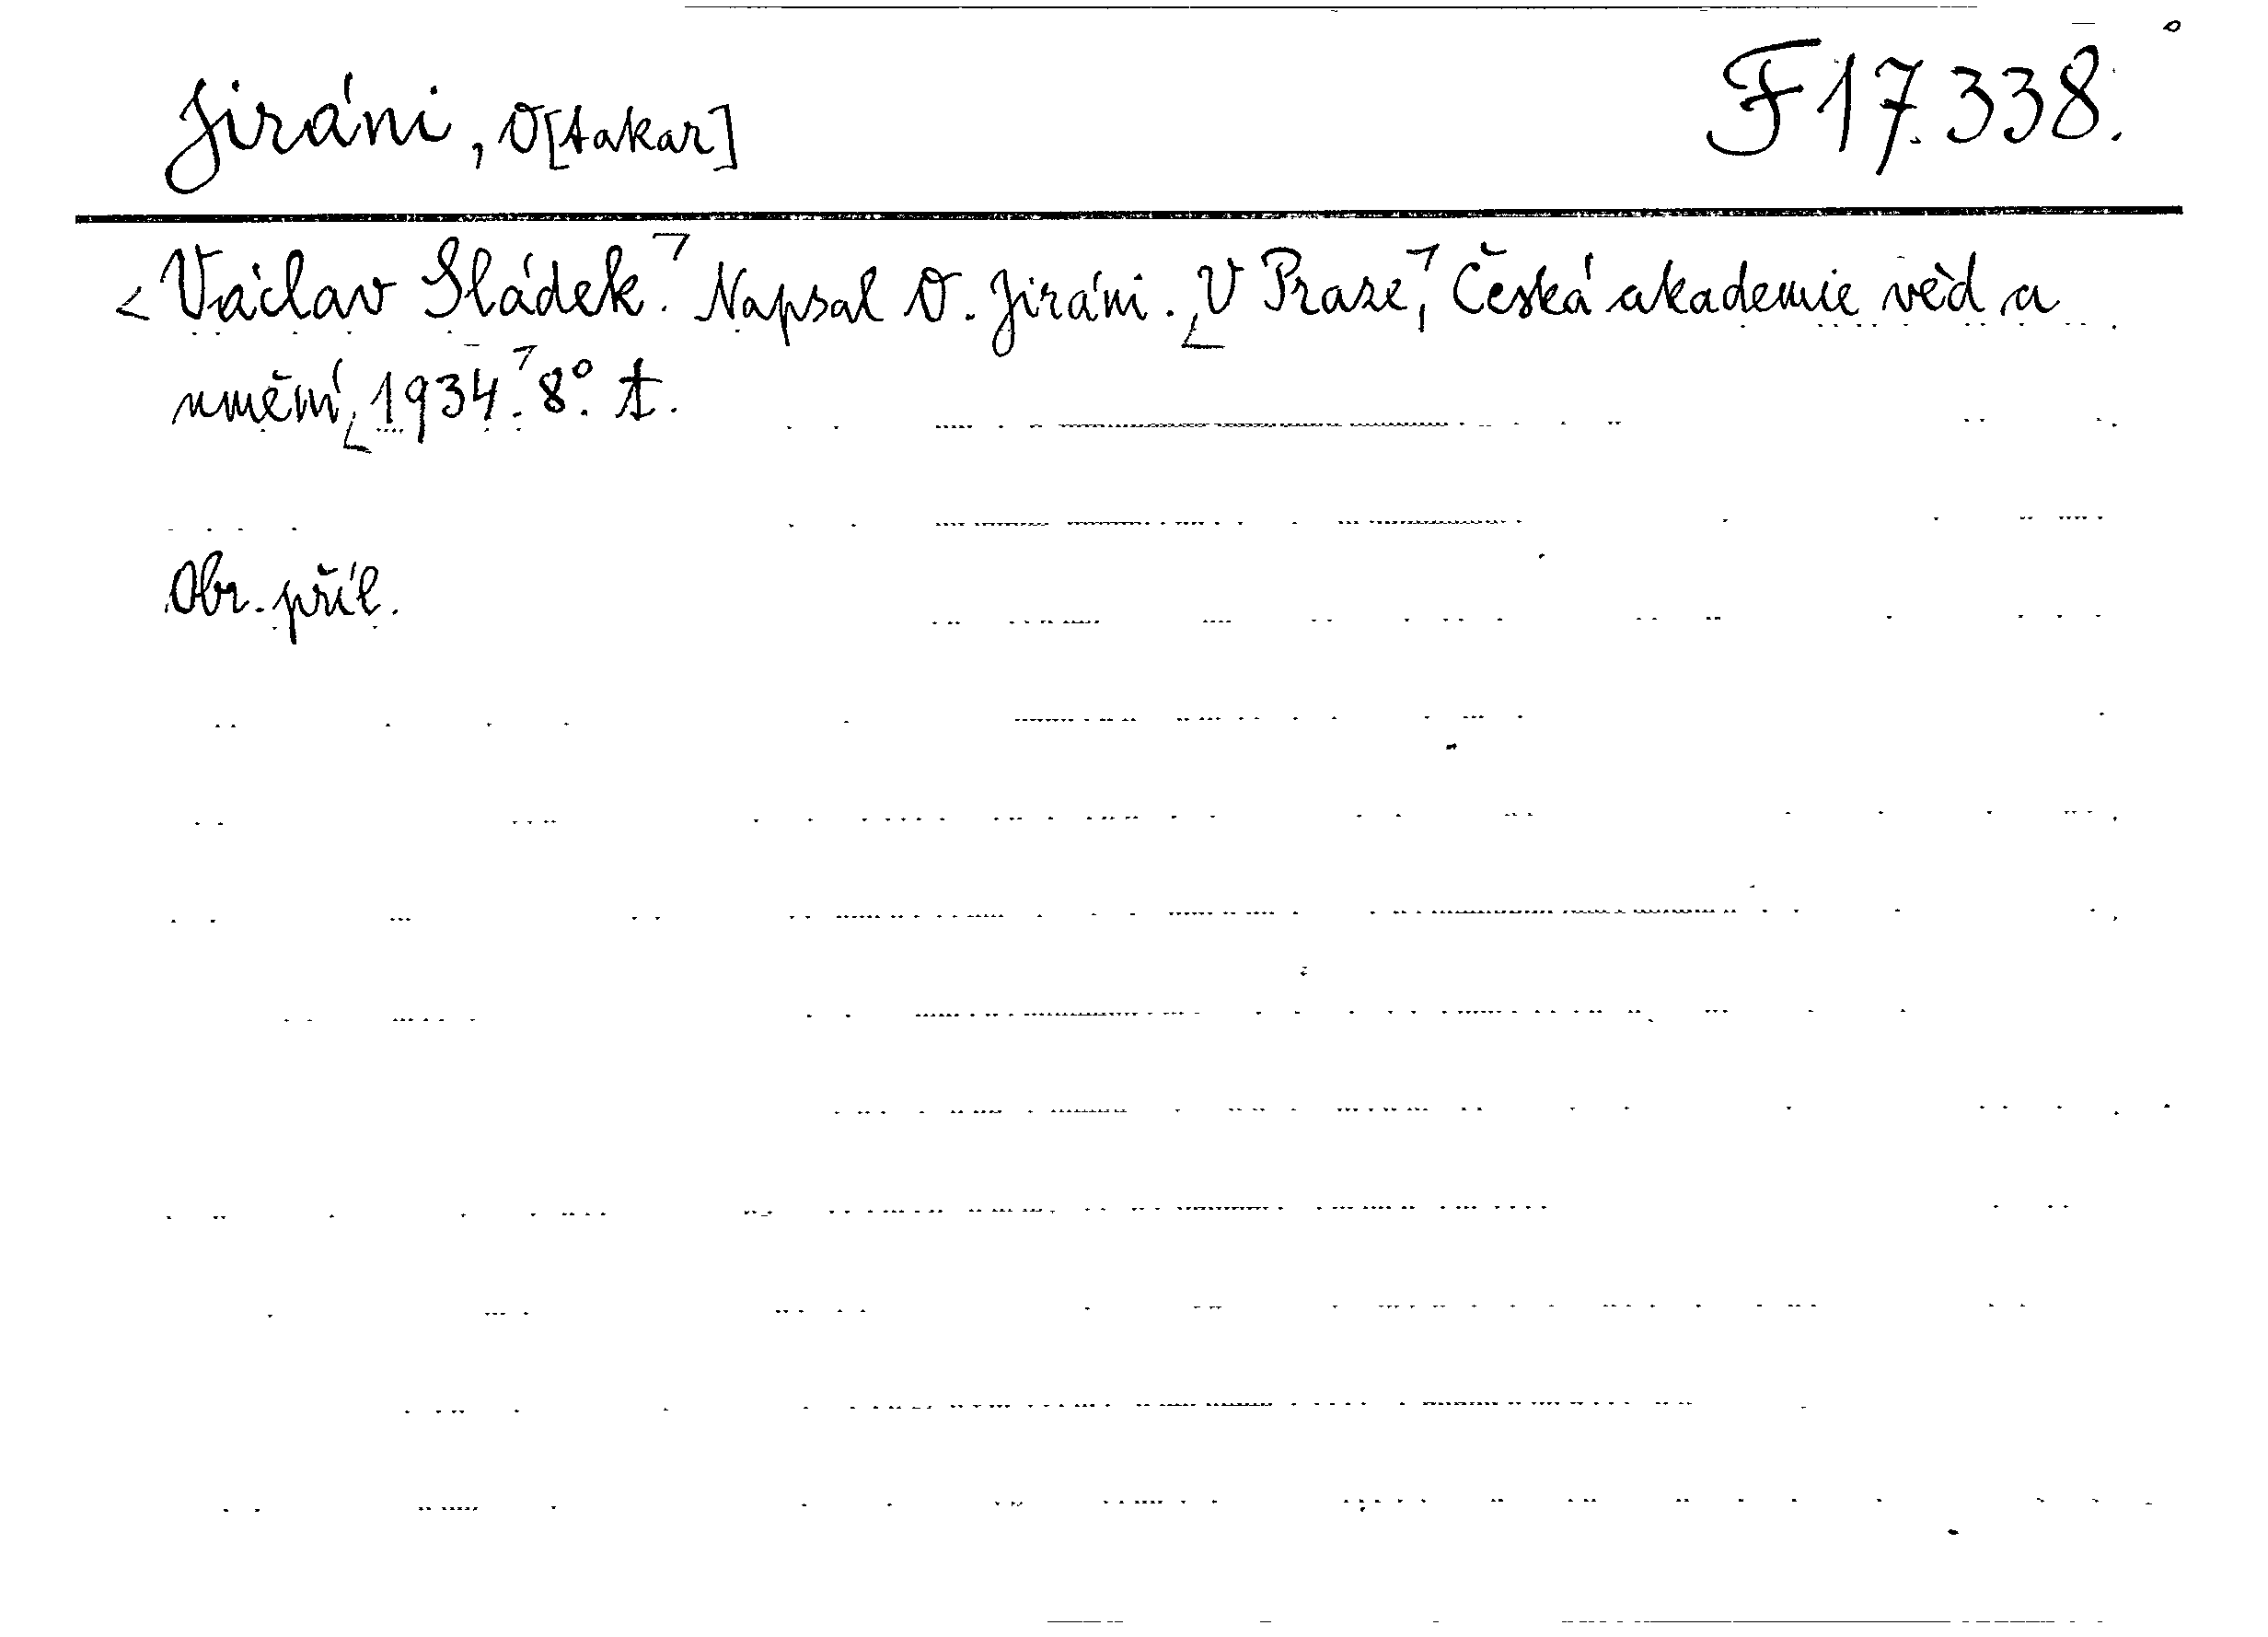 Jiráni, O[takar]
F 17.338.
Václav Sládek. Napsal O. Jiráni. V Praze, Česká akademie věd a
umění, 1934. 8°.
Obr. příl.